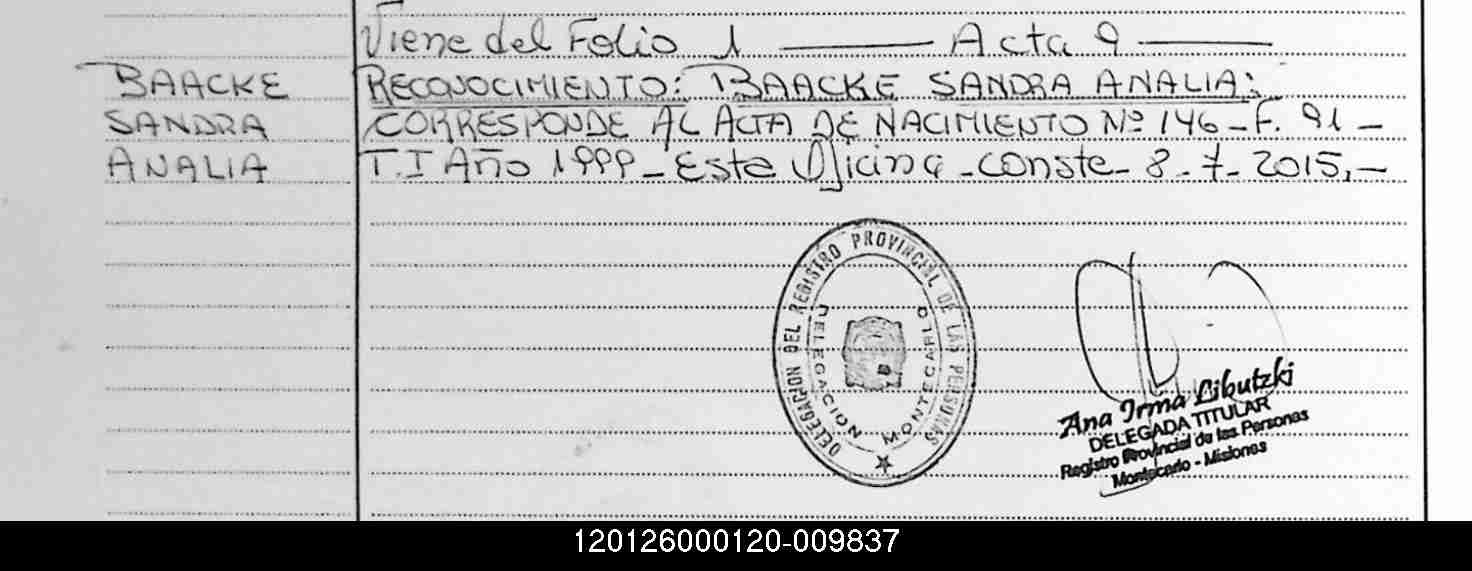 Viene del Folio 1 — Acta 9 —
BAACKE
SANDRA
ANALIA
RECONOCIMIENTO: BAACKE SANDRA ANALIA:
CORRESPONDE AL ACTA DE NACIMIENTO Nº 146 - F. 91 -
T. I Año 1999 - Este Oficina - conste - 8 - 7 - 2015, -
DELEGACION DEL REGISTRO PROVINCIAL DE LAS PERSONAS
DELEGACION MONTECARLO
Ana Irma Libutzki
DELEGADA TITULAR
Registro Provincial de las Personas
Montecarlo - Misiones
120126000120-009837